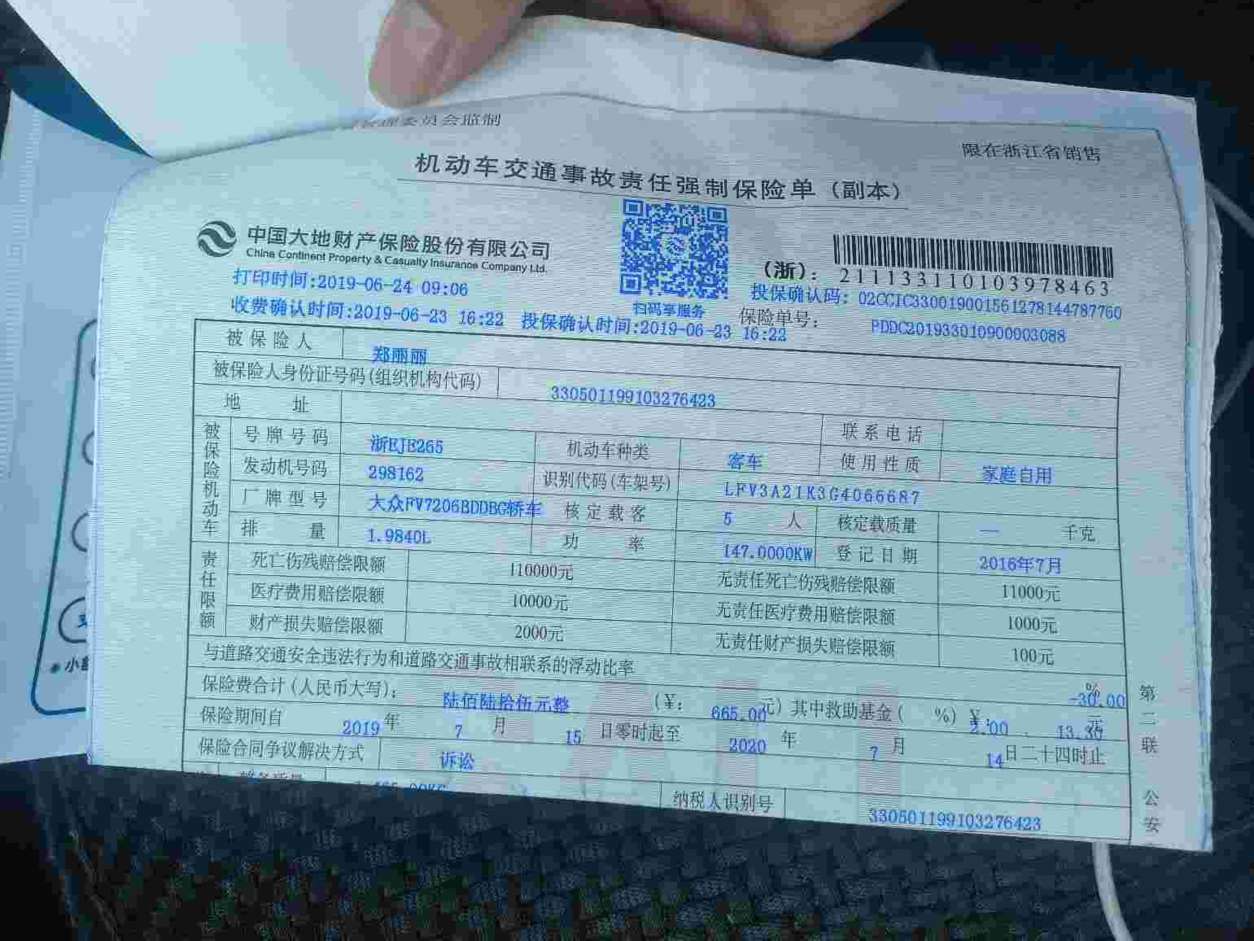 管理委员会监制
限在浙江省销售
机动车交通事故责任强制保险单（副本）
中国大地财产保险股份有限公司
China Continent Property & Casualty Insurance Company Ltd.
扫码享服务
(浙): 2111331101039784 63
打印时间:2019-06-24 09:06
投保确认码: 02CCIC330019001561278144787760
收费确认时间:2019-06-23 16:22 投保确认时间:2019-06-23 16:22
保险单号: PDDC201933010900003088
被保险人 郑丽丽
被保险人身份证号码(组织机构代码) 330501199103276423
地 址 联系电话
被保险机动车
号牌号码 浙EJE265 机动车种类 客车 使用性质 家庭自用
发动机号码 298162 识别代码(车架号) LFV3A21K3G4066687
厂牌型号 大众FV7206BDDBG轿车 核定载客 5 人 核定载质量 — 千克
排 量 1.9840L 功 率 147.0000KW 登记日期 2016年7月
责任限额
死亡伤残赔偿限额 110000元 无责任死亡伤残赔偿限额 11000元
医疗费用赔偿限额 10000元 无责任医疗费用赔偿限额 1000元
财产损失赔偿限额 2000元 无责任财产损失赔偿限额 100元
与道路交通安全违法行为和道路交通事故相联系的浮动比率 -30.00 %
保险费合计(人民币大写): 陆佰陆拾伍元整 (¥: 665.00 元) 其中救助基金( 2.00 %) ¥: 13.30 元
保险期间自 2019 年 7 月 15 日零时起至 2020 年 7 月 14 日二十四时止
保险合同争议解决方式 诉讼
纳税人识别号 330501199103276423
第二联
公安